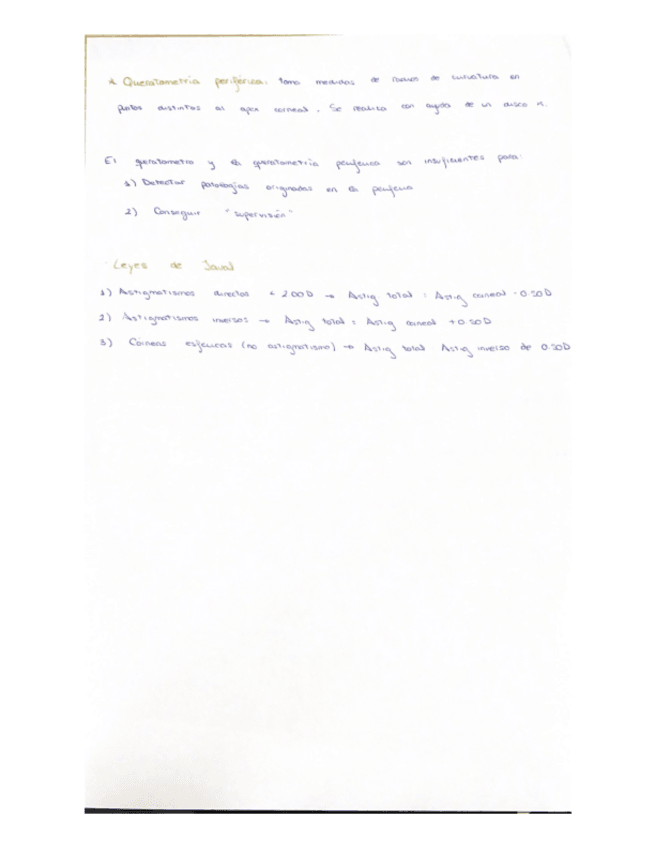 * Queratometría periférica: toma medidas de radios de curvatura en
puntos distintos al apex corneal. Se realiza con ayuda de un disco
El queratometro y la queratometría periferica son insuficientes para:
1) Detectar patologías originadas en la periferia
2) Conseguir "supervisión"
· Leyes de Javal
1) Astigmatismos directos < 2.00 D → Astig total = Astig corneal - 0.50 D
2) Astigmatismos inversos → Astig total = Astig corneal + 0.50 D
3) Corneas esfericas (no astigmatismo) → Astig total Astig inverso de 0.50 D